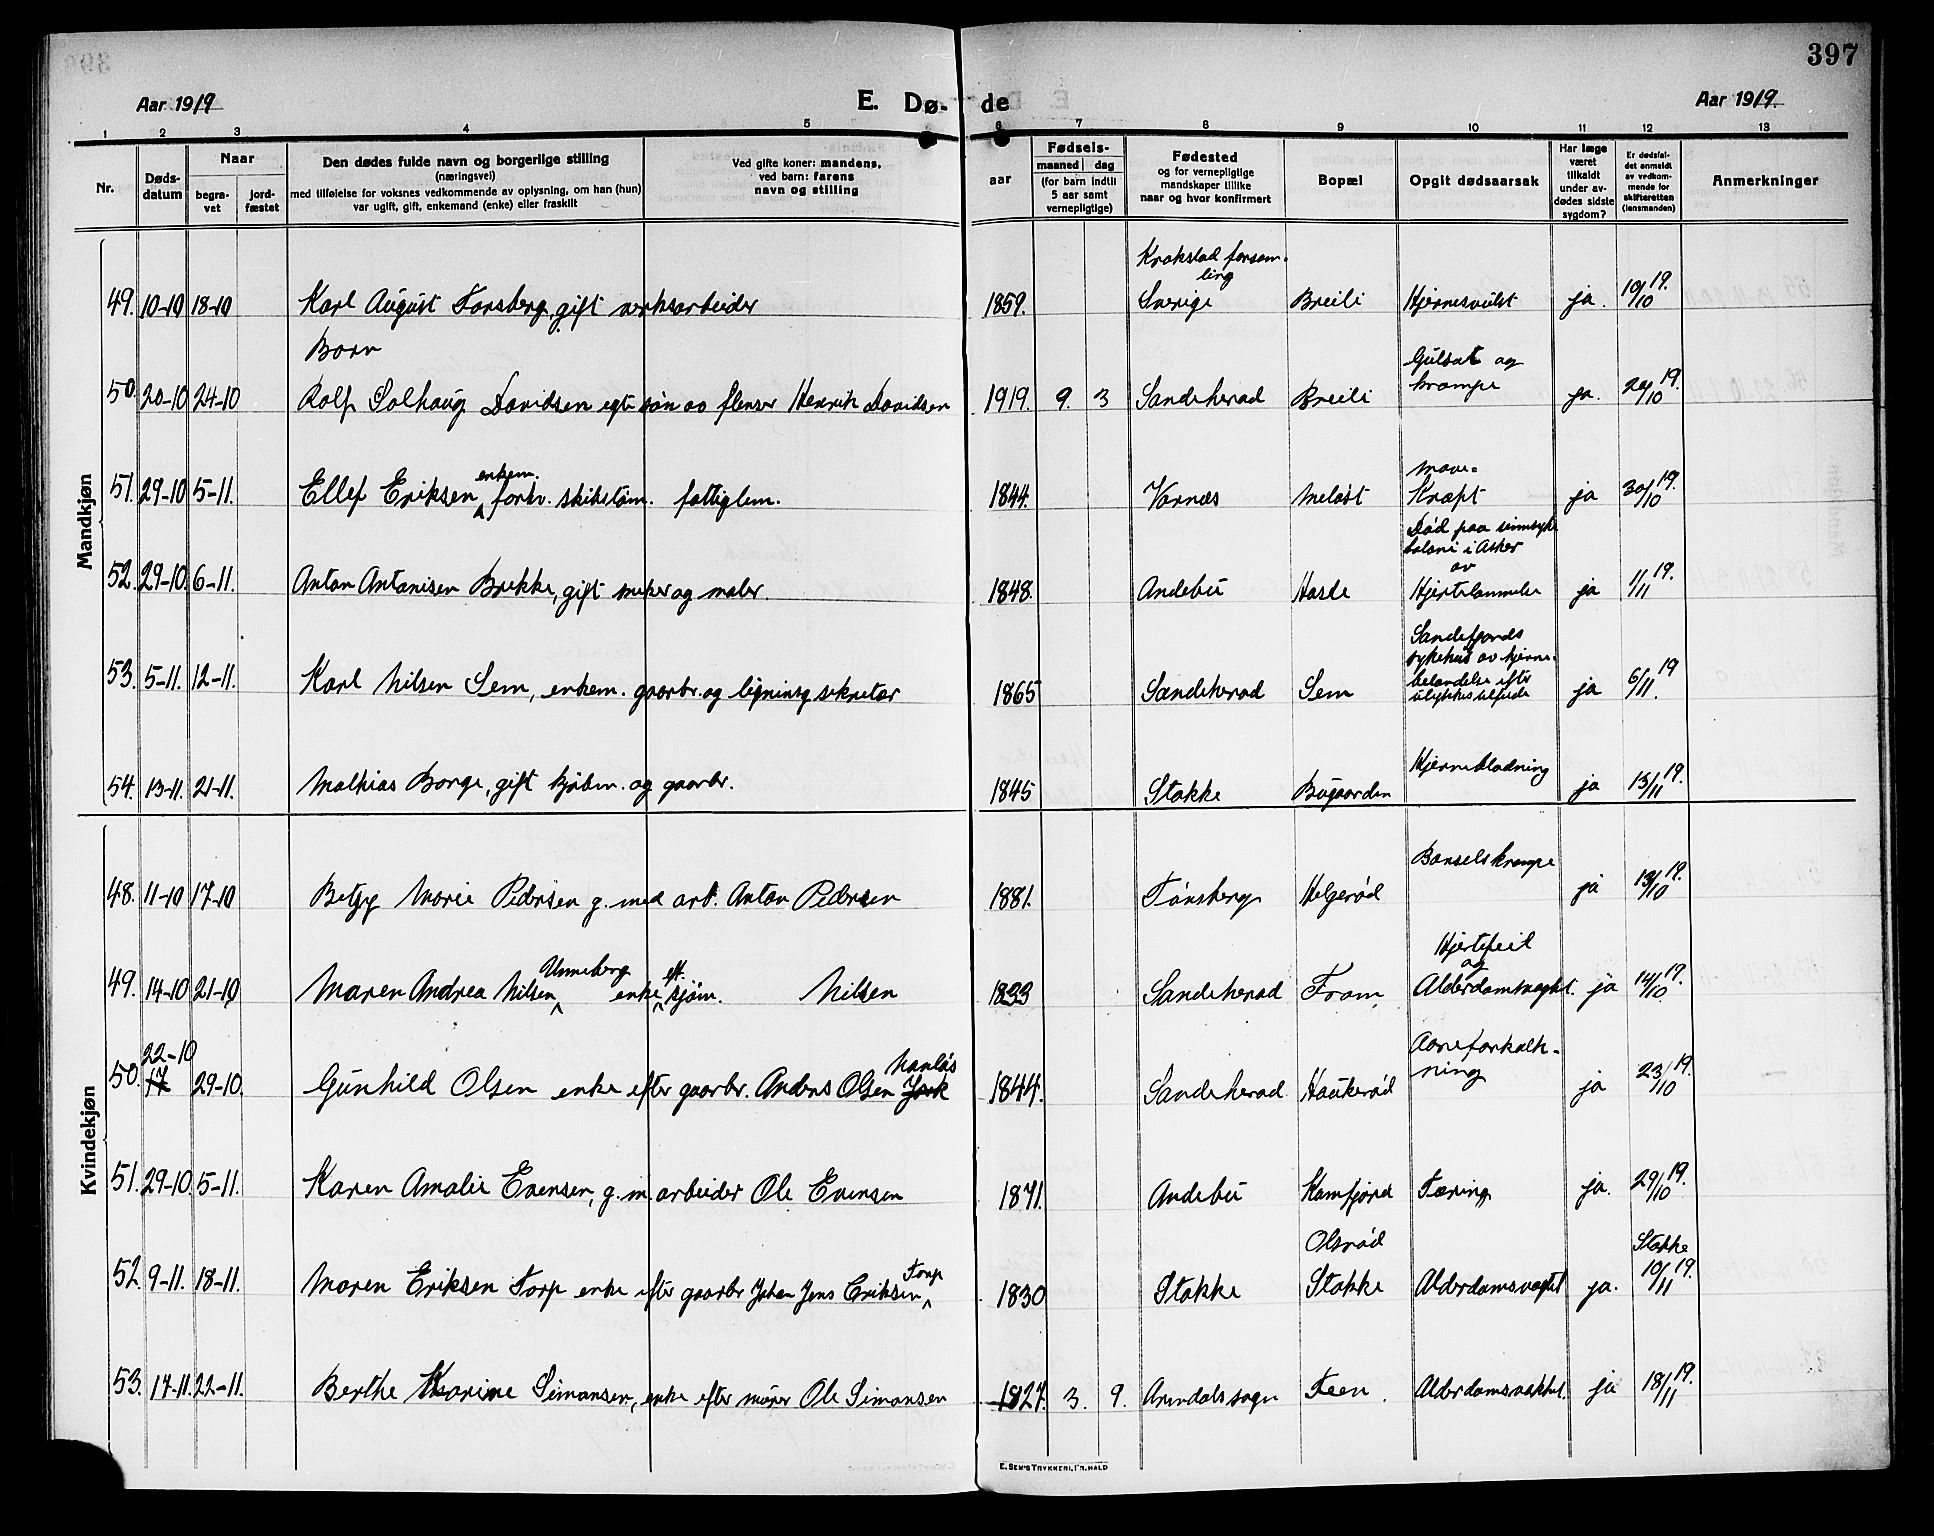 397
Aar 1919
E. Dø-
de
Aar 1919.
1 2 3 4 5 6 7 8 9 10 11 12 13
Nr.
Døds-
datum
Naar
begra-
vet
jord-
fæstet
Den dødes fulde navn og borgerlige stilling
(næringsvei)
med tilføielse for voksnes vedkommende av oplysning, om han (hun)
var ugift, gift, enkemand (enke) eller fraskilt
Ved gifte koner: mandens,
ved barn: farens
navn og stilling
aar
Fødsels-
maaned dag
(for barn indtil
5 aar samt
vernepligtige)
Fødested
og for vernepligtige
mandskaper tillike
naar og hvor konfirmert
Bopæl
Opgit dødsaarsak
Har læge
været
tilkaldt
under av-
dødes sidste
sygdom?
Er dødsfal-
det anmeldt
av vedkom-
mende for
skifteretten
(lensmanden)
Anmerkninger
Mandkjøn
Krokstad forsam-
ling
49. 10-10 18-10 Karl August Forsberg, gift verksarbeider 1859. Sverige Breili Hjernesvulst ja. 10/10 19.
Barn
Gulsot og
50. 20-10 24-10 Rolf Solhaug Davidsen egte søn av flenser Henrik Davidsen 1919. 9. 3 Sandeherad Breili krampe ja. 20/10 19.
enkem.
mave-
51. 29-10 5-11. Ellef Eriksen forhv. skibstøm. fattiglem. 1844. Varnæs Meløst Kræft ja 30/10 19.
Død paa sinnsyke
koloni i Asker
av
52. 29-10. 6-11. Anton Antonisen Brekke, gift snekker og maler. 1848. Andebu Hasle Hjertelammelse ja 1/11 19.
Sandefjords
sykehus av hjerne-
53. 5-11. 12-11. Karl Nilsen Sem, enkem. gaarbr. og ligningssekretær 1865 Sandeherad Sem ja 6/11. 19
54. 13-11. 21-11. Mathias Borge, gift kjøbm. og gaarbr. 1845 Stokke Bugaarden Hjerneblødning ja 15/11 19.
Kvindekjøn
48. 11-10 17-10 Betzy Marie Pedersen g. med arb. Anton Pedersen 1881. Tønsberg Helgerød Barselskrampe ja 13/10 19.
Unneberg eft.
Hjertefeil
og
49. 14-10 21-10 Maren Andrea Nilsen enke sjøm. Nilsen 1833 Sandeherad Fram Alderdomsvagt. ja 14/10 19.
22-10
Nanløs
Aareforkalk-
50. 17 29-10. Gunhild Olsen enke efter gaarbr. Anders Olsen 1844. Sandeherad Haukerød ning ja 23/10 19.
51. 29-10. 5-11. Karen Amalie Evensen, g. m. arbeider Ole Evensen 1871. Andebu Kamfjord Tæring ja. 29/10 19.
Torp
Olsrød
Stokke
52. 9-11. 18-11. Maren Eriksen Torp enke efter gaarbr Johan Jens Eriksen 1830 Stokke Stokke Alderdomsvagt ja. 10/11 19.
53. 17-11. 22-11. Berthe Karine Simonsen, enke efter murer Ole Simonsen 1827. 3. 9. Arendals sogn Feen. Alderdomsvakhet. ja 18/11 19.
E. SEM'S TRYKKERI, FR.HALD